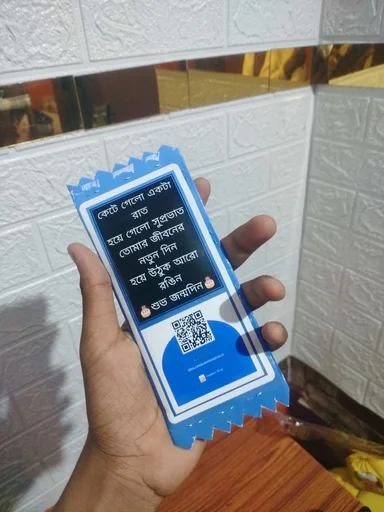 কেটে গেলো একটা
রাত
হয়ে গেলো সুপ্রভাত
তোমার জীবনের
নতুন দিন
হয়ে উঠুক আরো
রঙিন
শুভ জন্মদিন